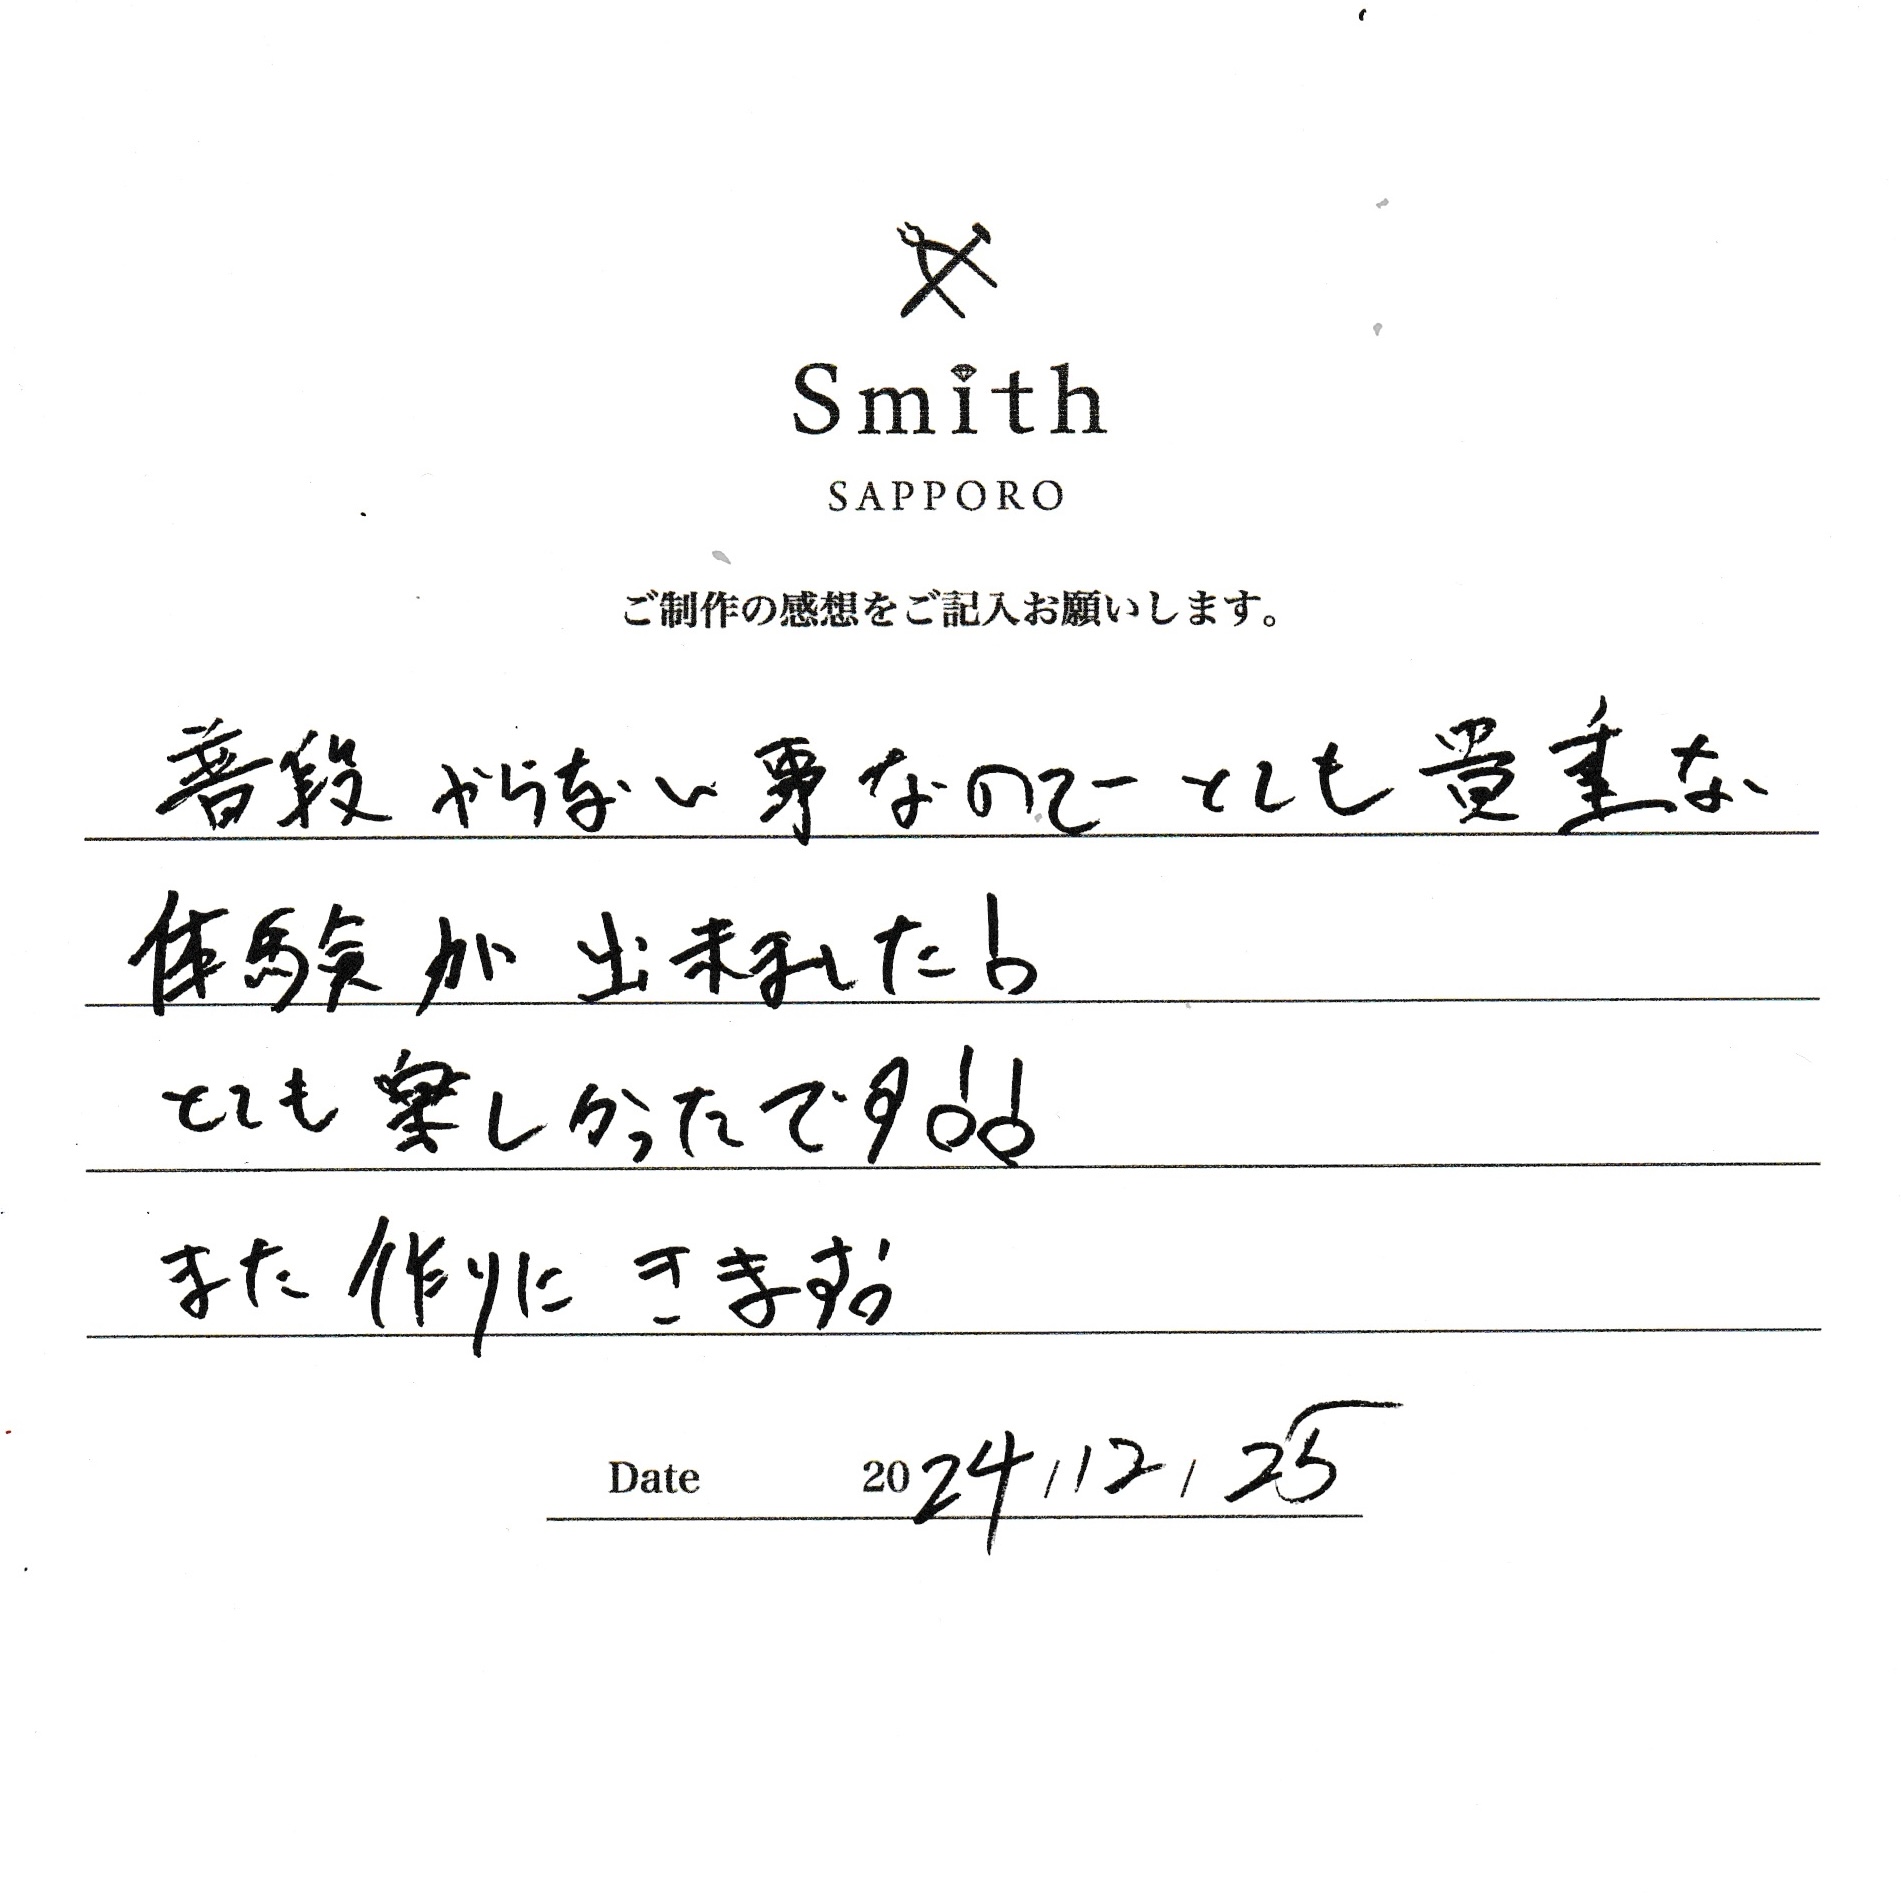 Smith
SAPPORO
ご制作の感想をご記入お願いします。
普段やらない事なのでとても貴重な
体験が出来ました!
とても楽しかったです!!
また作りにきます!
Date 2024/12/25